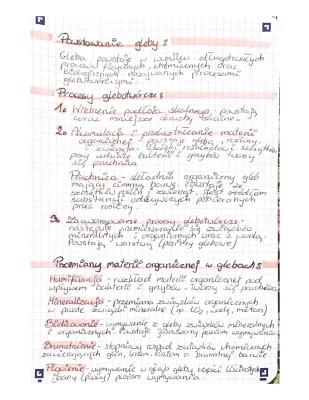 Powstawanie gleby:
Gleba powstaje w wyniku długotrwałych
procesów fizycznych, chemicznych oraz
biologicznych nazywanych procesami
glebotwórczymi.
Procesy glebotwórcze:
1. Wietrzenie podłoża skalnego, powstają
coraz mniejsze okruchy skalne.
2. Akumulacja i przekształcanie materii
organicznej - porastają glebę rośliny,
i zwierzęta.
przy udziale bakterii i grzybów tworzy
się próchnica
Próchnica - składnik organiczny gleb
mający ciemną barwę. Powstaje ze
szczątków roślin i zwierząt. Jest źródłem
substancji odżywczych pobieranych
przez rośliny.
3. Zaawansowane procesy glebotwórcze -
następuje przemieszczanie się związków
mineralnych i organicznych wraz z wodą.
Powstają warstwy (poziomy glebowe)
Przemiany materii organicznej w glebach:
Humifikacja - rozkład materii organicznej pod
wpływem bakterii i grzybów, tworzy się próchnica
Mineralizacja - przemiana związków organicznych
w proste związki mineralne (np. CO2, wodę, metan)
Bielicowanie - wymywanie z gleby związków mineralnych
i organicznych. Powstaje jasnoszary poziom wymywania.
Brunatnienie - stopniowy rozpad związków chemicznych
zawierających glin, krzem, żelazo o brunatnej barwie.
Płowienie - wymywanie w głąb gleby cząstek
jasny (płowy) poziom wymywania.